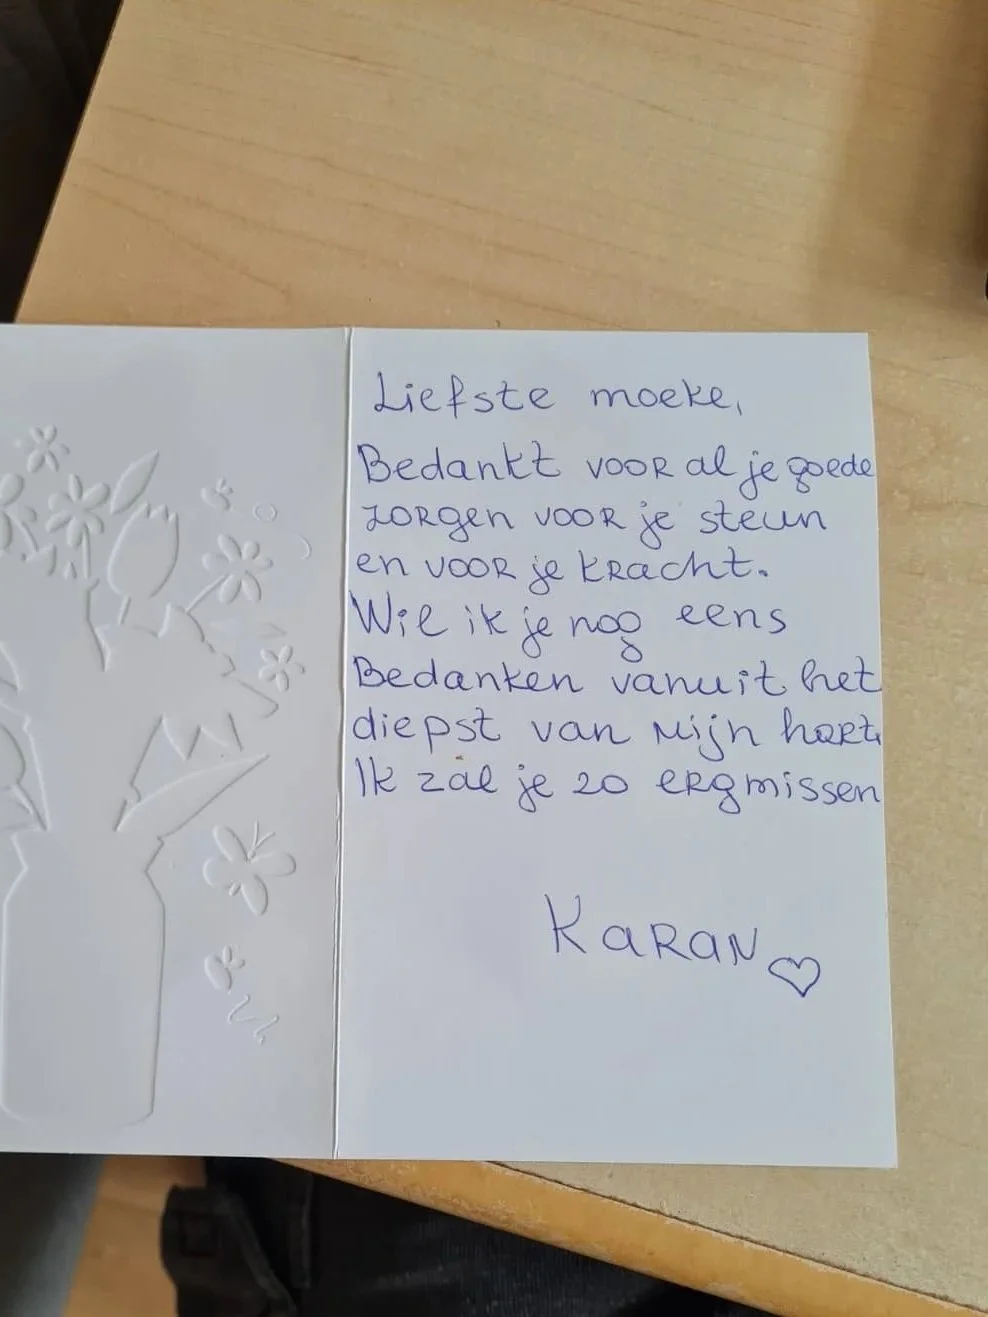 Liefste moeke,
Bedankt voor al je goede
zorgen voor je steun
en voor je kracht.
Wil ik je nog eens
Bedanken vanuit het
diepst van mijn hart.
Ik zal je zo erg missen
KARAN